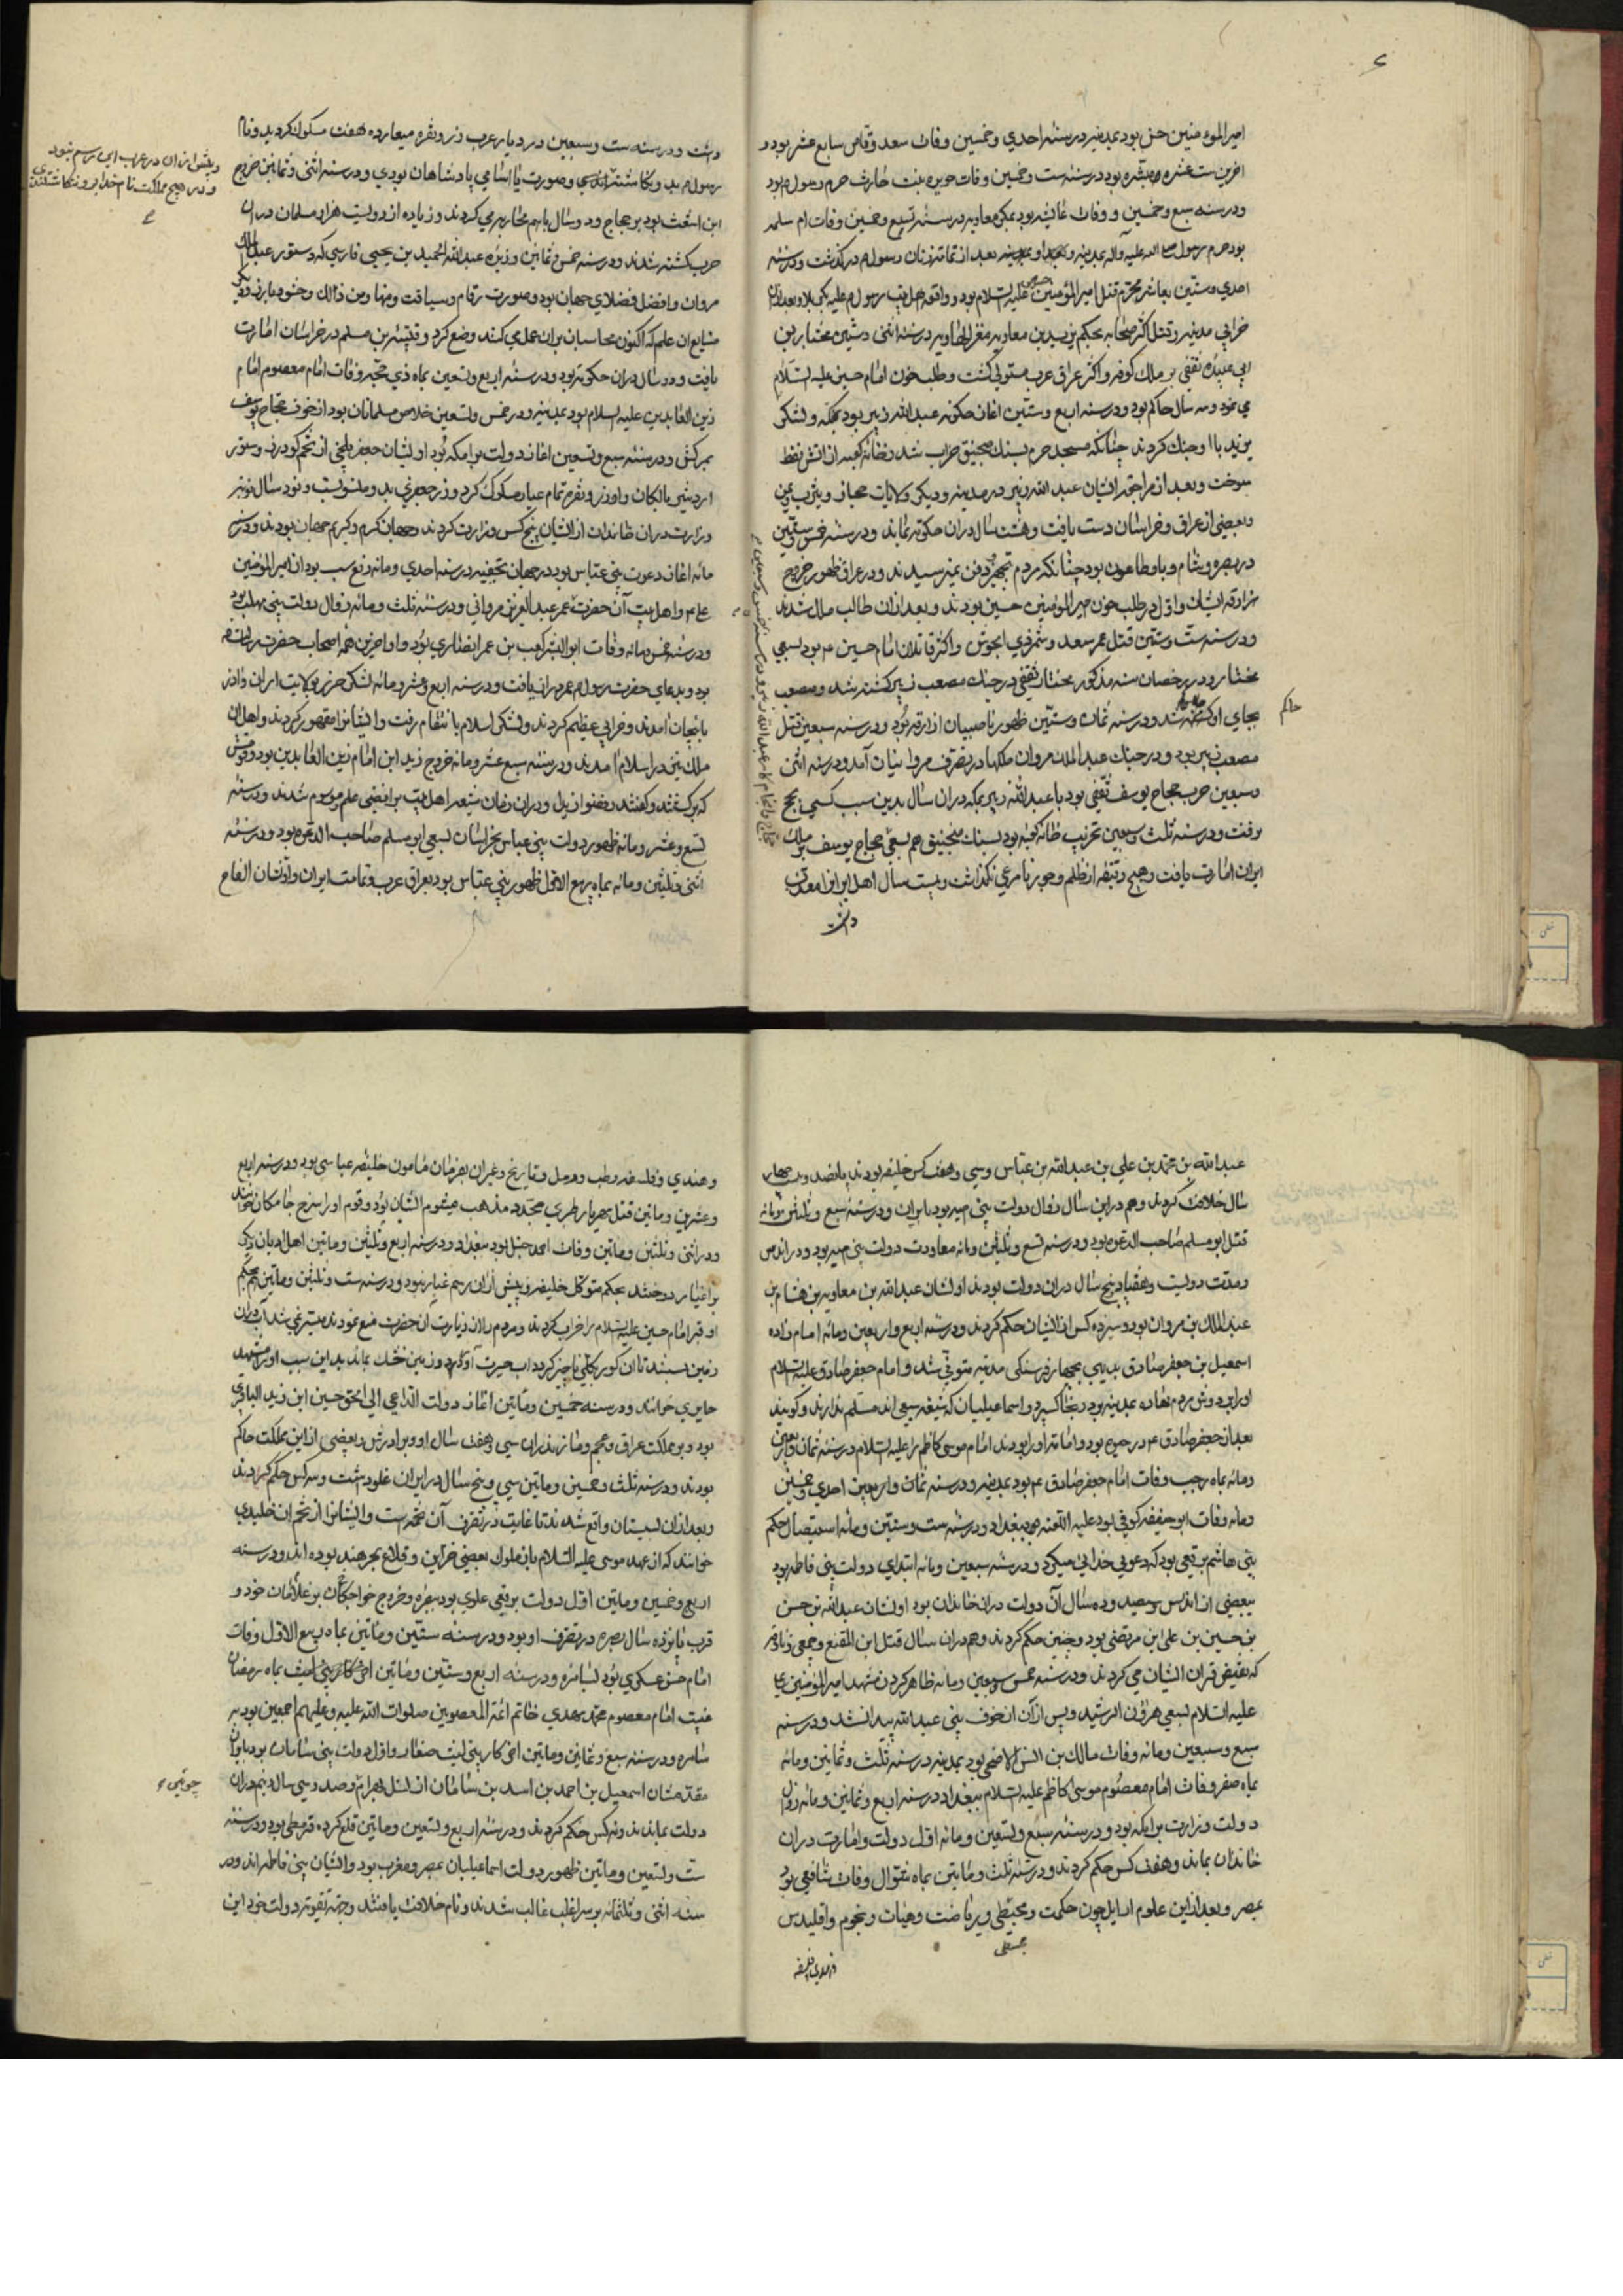 امیر المومنین حسن بود بمدینه در سنه احدی و خمسین وفات سعد وقاص سابع عشر بود و
اخرین ست عشره مبشره بود در سنه ست و خمسین وفات جویریه بنت حارث حرم رسول بود
و در سنه سبع و خمسین و وفات عایشه بود بمکه معاویه در سنه تسع و خمسین وفات ام سلمه
بود حرم رسول صلی الله علیه و آله بمدینه و بعد از تمامت زنان رسول م در گذشت و در سنه
احدی و ستین بعاشر محرم قتل امیر المومنین حسین علیه السلام بود و واقعه اهل بیت رسول م علیه بکربلا و بعد ازان
خرابی مدینه و قتل اکثر صحابه بحکم یزید بن معاویه در سنه اثنی و ستین مختار بن
ابی عبیده ثقفی بر ملک کوفه و اکثر عراق عرب مستولی گشت و طلب خون امام حسین علیه السلام
می نمود و سه سال حاکم بود و در سنه اربع و ستین اغاز حکومه عبد الله زبیر بود بمکه و لشکر
یزید با او جنک کردند چنانکه مسجد حرم بسنک منجنیق خراب شد و خانه کعبه از اتش نفط
بسوخت و بعد از مراجعه ایشان عبد الله زبیر در مدینه و دیکر ولایات حجاز و یثرب و یمن
و بعضی از عراق و خراسان دست یافت و هشت سال دران حکومه بماند و در سنه خمس و ستین
در بصره و شام و با و طاعون بود چنانکه مردم بتجهیز و دفن نمیرسیدند و در عراق ظهور خروج
ازارقه ایشان و اول در طلب خون امیر المومنین حسین بودند و بعد ازان طالب مال شدند
و در سنه ست و ستین قتل عمر سعد و شمر ذی الجوش و اکثر قاتلان امام حسین م بود بسعی
مختار و در رمضان سنه مذکور مختار ثقفی در جنک مصعب زبیر کشته شد و مصعب
بجای او حاکم شد و در سنه ثمان و ستین ظهور ناصبیان ازارقه بود و در سنه سبعین قتل
مصعب زبیر بود و در جنک عبد الملک مروان ملکها در تصرف مروانیان آمد و در سنه اثنی
و سبعین حرب حجاج یوسف ثقفی بود با عبد الله زبیر بمکه دران سال بدین سبب کسی بحج
نرفت و در سنه ثلث و سبعین تخریب خانه کعبه بود بسنک منجنیق هم بسعی حجاج یوسف بر ملک
ایران امارت یافت و هیچ دقیقه از ظلم و جور نامرعی نکذاشت و بیست سال اهل ایران را معذب
داشت
حاکم
داشت و در سنه ست و سبعین در دیار عرب زر و نقره معیار ده هفت مسکوک کردند و نام
رسول م بد و نکاشتند و صورت یا اسامی پادشاهان بودی و در سنه اثنی و ثمانین خروج
ابن اشعث بود بر حجاج و دو سال باهم محاربه می کردند و زیاده از دویست هزار مسلمان دران
حرب کشته شدند و در سنه خمس و ثمانین وزیره عبد الله الحمید بن یحیی فارسی که دستور عبد الملک
مروان و افضل فضلای جهان بود و صورت رقام و سیاقت و منها و من ذالک و حشو و بارز و دیکر
مشایع ان علم که اکنون محاسبان بران عمل می کنند وضع کرد و قتیبه بن مسلم در خراسان امارت
یافت و دو سال دران حکومه بود و در سنه اربع و تسعین بماه ذی حجه وفات امام معصوم امام
زین العابدین علیه السلام بود بمدینه و در خمس و تسعین خلاص مسلمانان بود از خوف حجاج یوسف
بمرکش و در سنه سبع و تسعین اغاز دولت برامکه بود اولشان جعفر بلخی از تخم کودرز دستور
اردشیر بابکان و او زر و نقره تمام عیار مسکوک کرد و زر جعفری بد و منسوبست و نود سال
وزارت دران خاندان از ایشان پنج کس وزارت کردند و جهان کرم و کریم جهان بودند و در سنه
مائه اغاز دعوت بنی عباس بود در جهان بخفیه در سنه احدی و مائه رفع سب بود از امیر المومنین
علی م و اهل بیت آن حضرت عمر عبد العزیز مروانی و در سنه ثلث و مائه زوال دولت بنی مهلب بود
و در سنه خمس و مائه وفات ابو البشر کعب بن عمر انصاری بود و او اخرین همه اصحاب حضرت رسالت م
بود و بدعای حضرت رسول م عمر درازی یافت و در سنه اربع و عشر و مائه لشکر خزر بولایت ایران و اذر
بایجان آمدند و خرابی عظیم کردند و لشکر اسلام بانتقام رفت و ایشانرا مقهور کردند و اهل ان
ملک نیز در اسلام آمدند و در سنه سبع عشر و مائه خروج زید ابن امام زین العابدین بود و قومش
که برکشتند و کفتند رفضوا زیدا و دران زمان شیعه اهل بیت برافضی علم موسوم شدند و در سنه
تسع و عشر و مائه ظهور دولت بنی عباس بخراسان بسعی ابو مسلم صاحب الدعوه بود و در سنه
اثنی و ثلثین و مائه بماه ربیع الاول ظهور بنی عباس بود بعراق عرب و تمامت ایران و اولشان السفاح
و پیش ازان در عرب این رسم نبود
و در هیچ مملکت نام خدا بر زر نکاشتندی
عبد الله بن محمد بن علی بن عبد الله بن عباس و سی و هفت کس خلیفه بودند پانصد و بیست چهار
سال خلافت کردند و هم دراین سال زوال دولت بنی امیه بود بایران و در سنه سبع و ثلثین و مائه
قتل ابو مسلم صاحب الدعوه بود و در سنه تسع و ثلثین و مائه معاودت دولت بنی امیه بود و در اندلس
و مدت دویست و هفتاد و پنج سال دران دولت بودند اولشان عبد الله بن معاویه بن هشام بن
عبد الملک بن مروان بود و سیزده کس از ایشان حکم کردند و در سنه اربع و اربعین و مائه امام زاده
اسمعیل بن جعفر صادق بدیهی بچهار فرسنکی مدینه متوفی شد و امام جعفر صادق علیه السلام
او را بر دوش مردم نهاده بمدینه برد و بخاک سپرد و اسماعیلیان که شیعه سبعی اند مسلم ندارند و کویند
بعد از جعفر صادق م در حیوه بود و امامت او را بود نه امام موسی کاظم را علیه السلام در سنه ثمان و اربعین
و مائه بماه رجب وفات امام جعفر صادق م بود بمدینه و در سنه ثمان و اربعین احدی و خمسین
و مائه وفات ابو حنیفه کوفی بود علیه اللعنه ببغداد و در سنه ست و ستین و مائه استیصال حکم
بنی هاشم برقعی بود که دعوی خدایی میکرد و در سنه سبعین و مائه ابتدای دولت بنی فاطمه بود
ببعضی از اندلس و سیصد و ده سال آن دولت دران خاندان بود اولشان عبد الله بن حسن
بن حسین بن علی ابن مرتضی بود و چنین حکم کردند و هم دران سال قتل ابن المقفع و جمعی زنادقه
که نقیض قران ایشان می کردند و در سنه خمس و سبعین و مائه ظاهر کردن مشهد امیر المومنین علی
علیه السلام بسعی هرون الرشید و پس ازآن از خوف بنی عبد الله پیدا نشد و در سنه
سبع و سبعین و مائه وفات مالک بن انس الاصحی بود بمدینه در سنه ثلث و ثمانین و مائه
بماه صفر وفات امام معصوم موسی الکاظم علیه السلام ببغداد در سنه اربع و ثمانین و مائه زوال
دولت وزارت برامکه بود و در سنه سبع و تسعین و مائه اول دولت و امارت دران
خاندان بماند و هفت کس حکم کردند و در سنه ثلث و مایتین بماه شوال وفات شافعی بود
بمصر و بعد ازاین علوم اوایل چون حکمت و مجسطی و ریاضت و هیات و نجوم و اقلیدس
مجسطی
و هندی و فلسفه
و هندی و فلسفه و طب و رمل و تاریخ و غیران بفرمان مامون خلیفه عباسی بود و در سنه اربع
و عشرین و ماتین قتل مهریار طبری مجدد مذهب میشوم ایشان بود و قوم او را سرخ جامکان خوانند
و در اثنی و ثلثین و ماتین وفات احمد حنبل بود ببغداد و در سنه اربع و ثلثین و ماتین اهل ادیان دیکر
بر اغیار دوختند بحکم متوکل خلیفه و پیش ازان رسم غیار نبود و در سنه ست و ثلثین و ماتین هم بحکم
او قبر امام حسین علیه السلام را خراب کردند و مردم را از زیارت آن حضرت منع نمودند میسر نمی شد آب دران
زمین بستند تا ان کور بکلی ناچیز کردد اب حیرت آورد و زمین خشک بماند بدین سبب او را مشهد
حایری خوانند و در سنه خمسین و ماتین اغاز دولت الداعی الی الحق حسین ابن زید الباقری
بود و بر مملکت عراق و عجم و مازندران سی و هفت سال او و برادرش و بعضی ازاین مملکت حاکم
بودند و در سنه ثلث و خمسین و ماتین سی و پنج سال در ایران غلو داشت و سه کس حکم کردند
و بعد ازان بسیستان واقع شده ند تا غایت در تصرف آن تخمه است و ایشانرا از تخم ان خلیدی
خوانند که از عهد موسی علیه السلام بازملوک بعضی خراین و قلاع بحر هند بوده اند و در سنه
اربع و خمسین و ماتین اول دولت برقعی علوی بود ببصره و خروج خواجکان بر غلامان خود و
قرب پانزده سال بصره در تصرف او بود و در سنه ستین و ماتین بماه ربیع الاول وفات
امام حسن عسکری بود بسامره و در سنه اربع و ستین و ماتین اخر کار بنی لیث بماه رمضان
غیبت امام معصوم محمد مهدی خاتم ائمه المعصومین صلوات الله علیه و علیهم اجمعین بود به
سامره و در سنه سبع و ثمانین و ماتین اخر کار بنی لیث صفار و اول دولت بنی سامان بود بایران
مقدمشان اسمعیل بن احمد بن اسد بن سامان از نسل بهرام و صد و سی سال و نیم دران
دولت بماندند و نه کس حکم کردند و در سنه اربع و تسعین و ماتین قلع کرده قرمطی بود و در سنه
ست و تسعین و ماتین ظهور دولت اسماعیلیان بمصر و مغرب بود و ایشان بنی فاطمه اند و در
سنه اثنی و ثلثمائه بر بنی اغلب غالب شدند و نام خلافت یافتند و جهة تقویة دولت خود این